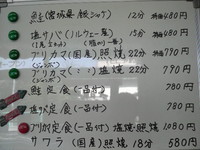 鮭(宮城県 銀シャケ) 12分 単品480円
塩サバ(ノルウェー産) 15分 単品480円
ブリカマ(国産)照焼 22分 790円
ブリカマ( 〃 )塩焼 22分 790円
(ジャンボ)
鮭定食(一品付) 780円
塩サバ定食(一品付) 780円
ブリカマ定食(一品付)塩焼・照焼 1080円
サワラ(国産)照焼 18分 580円